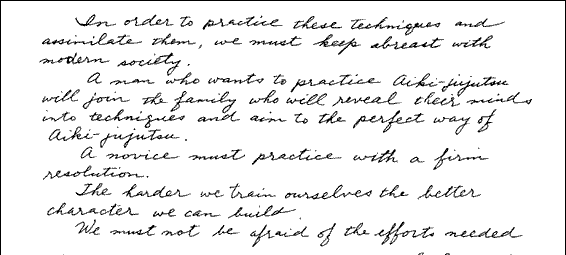 In order to practice these techniques and
assimilate them, we must keep abreast with
modern society.
A man who wants to practice Aiki-jujutsu
will join the family who will reveal their minds
into techniques and aim to the perfect way of
Aiki-jujutsu.
A novice must practice with a firm
resolution.
The harder we train ourselves the better
character we can build.
We must not be afraid of the efforts needed